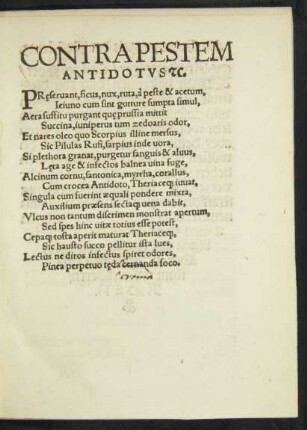 CONTRA PESTEM
ANTIDOTVS ⁊c.
PRęseruant, ficus, nux, ruta, à peste & acetum,
Ieiuno cum sint gutture sumpta simul,
Aera suffitu purgant quę prussia mittit
Succina, iuniperus tum zedoaris odor,
Et nares oleo quo Scorpius illine mersus,
Sic Pilulas Rufi, sarpius inde uora,
Si plethora grauat, purgetur sanguis & aluus,
Lęta age & infectos balnea uina fuge,
Alcinum cornu, santonica, myrrha, corallus,
Cum crocea Antidoto, Theriaceq; iuuat,
Singula cum fuerint æquali pondere mixta,
Auxilium præsens sectaq; uena dabit,
Vlcus non tantum discrimen monstrat apertum,
Sed spes hinc uitæ totius esse potest,
Cepaq; tosta aperit maturat Theriaceq;,
Sic hausto succo pellitur ista lues,
Lectus ne diros infectus spiret odores,
Pinea perpetuo tęda cernanda foco.